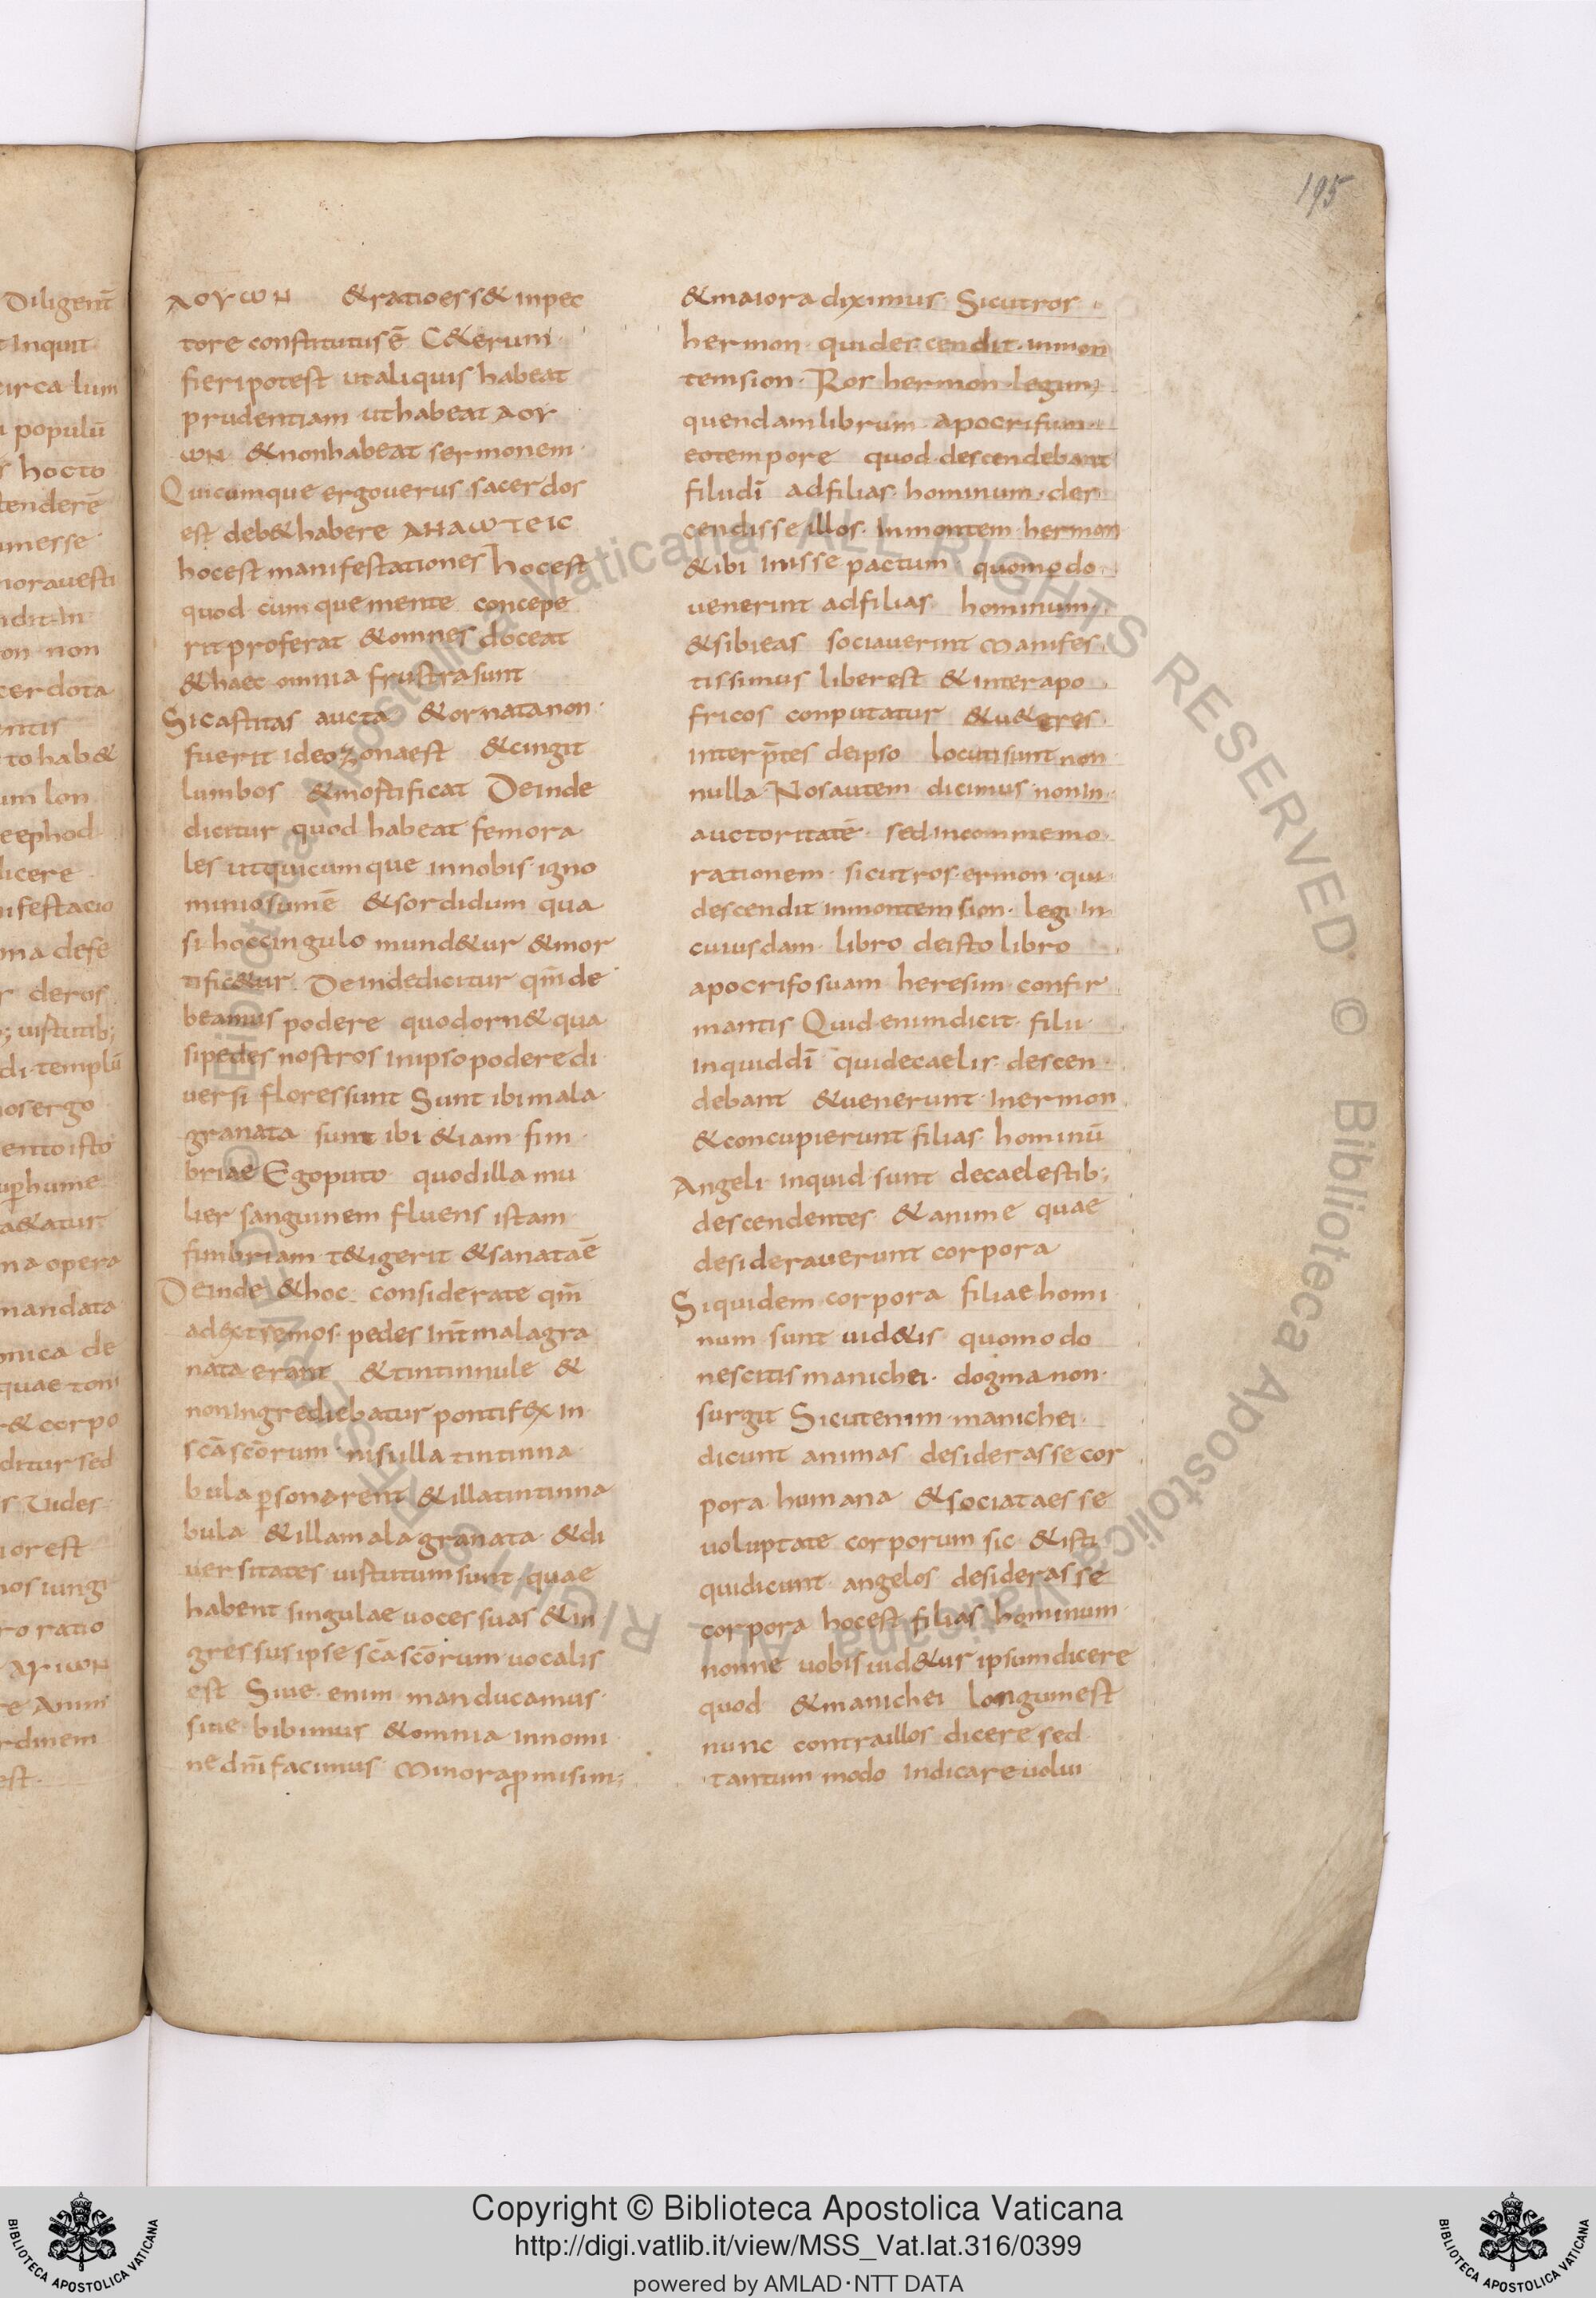 195
Diligent̄
t inquit
circa lum
populū
s hocto
tenderē
messe
moravesti
ndit in
on non
cerdota
entis
to hab&
um lon
eephod
dicere
nifestacio
ona defe
r deros
uistutib;
di templū
nos ergo
ento isto
ꝑhume
a&atur
na opera
mandata
onica de
quae toni
r& corpo
ditur sed
s Uides
ior est
nos iungi
ro ratio
ΑΥΙѠΝ
re Anim
rdinem
est
ΛΟΥѠΝ &ratioess& inpec
tore constitutus ē C&erum
fieripotest utaliquis habeat
prudentiam uthabeat ΛΟΥ
ѠΝ &nonhabeat sermonem
Quicumque ergouerus sacerdos
est deb&habere ΛΗΛѠΤΕΙC
hocest manifestationes hocest
quod cumque mente concepe
rit proferat &omnes doceat
&haec omnia frustrasunt
Sicastitas aucta &ornatanon
fuerit ideozonaest &cingit
lumbos &mostificat Deinde
dicitur quod habeat femora
les utquicumque innobis igno
miniosumē &sordidum qua
si hoccingulo mund&ur &mor
tific&ur Deindedicitur qm̄ de
beamus podere quodorn& qua
sipedes nostros inipsopodere di
uersi floressunt Sunt ibi mala
granata sunt ibi &iam fim
briae Egoputo quodilla mu
lier sanguinem fluens istam
fimbriam t&igerit &sanataē
Deinde &hoc considerate qm̄
adextremos pedes int̄ malagra
nata erant &tintinnule &
noningrediebatur pontifex in
sc̄a sc̄orum nisiilla tintinna
bula ꝑsonarent &illatintinna
bula &illamala granata &di
uersitates uistutum sunt quae
habent singulae uoces suas &in
gressus ipse sc̄a sc̄orum uocalis
est Siue enim manducamus
siue bibimus &omnia innomi
ne dn̄i facimus Minora ꝓmisim;
&maiora diximus Sicut ros
hermon qui descendit inmon
tem sion Ros hermon legum
quendam librum apocrifum
eotempore quod descendebant
filii dī adfilias hominum des
cendisse illos inmontem hermon
&ibi inisse pactum quomodo
uenerint adfilias hominum
&sibieas sociauerint Manifes
tissimus liberest &interapo
fricos conputatur &u&eres
interp̄tes deipso locutisunt non
nulla Nosautem dicimus nonin
auctoritatē sedincommemo
rationem sicut ros ermon qui
descendit inmontem sion legi in
cuiusdam libro deisto libro
apocrifo suam heresim confir
mantis Quid enim dicit filii
inquid dī quidecaelis descen
debant &uenerunt inermon
&concupierunt filias hominū
Angeli inquid sunt decaelestib;
descendentes &anime quae
desiderauerunt corpora
Siquidem corpora filiae homi
num sunt uid&is quomodo
nescitis manichei dogma non
surgit Sicutenim manichei
dicunt animas desiderasse cor
pora humana &sociataesse
uoluptate corporum sic &isti
quidicunt angelos desiderasse
corpora hocest filias hominum
nonne uobis uid&ur ipsumdicere
quod &manichei Longumest
nunc contraillos dicere sed
tantum modo indicareuolui
© Biblioteca Apostolica Vaticana ALL RIGHTS RESERVED © Biblioteca Apostolica Vaticana ALL RIGHTS RESERVED
Copyright © Biblioteca Apostolica Vaticana
http://digi.vatlib.it/view/MSS_Vat.lat.316/0399
powered by AMLAD·NTT DATA
BIBLIOTECA APOSTOLICA VATICANA
BIBLIOTECA APOSTOLICA VATICANA